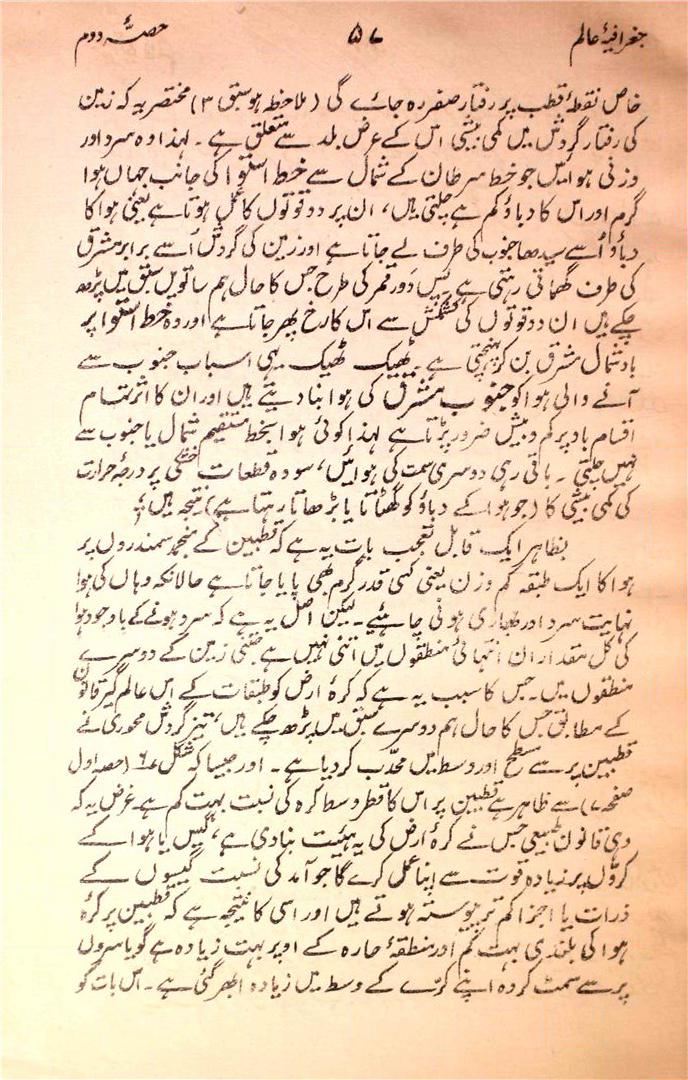 جغرافیۂ عالم ۵۷ حصۂ دوم
خاص نقطۂ قطب پر رفتار صفر رہ جائے گی (ملاحظہ ہو سبق ۳) مختصر یہ کہ زمین
کی رفتار گردش میں کمی بیشی اس کے عرض بلد سے متعلق ہے۔ لہذا وہ سرد اور
وزنی ہوائیں جو خط سرطان کے شمال سے خط استوا کی جانب جہاں ہوا
گرم اور اس کا دباؤ کم ہے چلتی ہیں، ان پر دو قوتوں کا عمل ہوتا ہے یعنی ہوا کا
دباؤ اُسے سیدھا جنوب کی طرف لے جاتا ہے اور زمین کی گردش اُسے برابر مشرق
کی طرف گھماتی رہتی ہے پس دَور قمر کی طرح جس کا حال ہم ساتویں سبق میں پڑھ
چکے ہیں ان دو قوتوں کی کشمکش سے اس کا رخ پھر جاتا ہے اور وہ خط استوا پر
باد شمال مشرق بن کر پہنچتی ہے۔ ٹھیک ٹھیک یہی اسباب جنوب سے
آنے والی ہوا کو جنوب مشرق کی ہوا بنا دیتے ہیں اور ان کا اثر تمام
اقسام باد پر کم و بیش ضرور پڑتا ہے لہذا کوئی ہوا بخط مستقیم شمال یا جنوب سے
نہیں چلتی۔ باقی رہی دوسری سمت کی ہوائیں، سو وہ قطعات خشکی پر درجۂ حرارت
کی کمی بیشی کا (جو ہوا کے دباؤ کو گھٹاتا یا بڑھاتا رہتا ہے) نتیجہ ہیں؛
بظاہر ایک قابل تعجب بات یہ ہے کہ قطبین کے منجمد سمندروں پر
ہوا کا ایک طبقہ کم وزن یعنی کسی قدر گرم بھی پایا جاتا ہے حالانکہ وہاں کی ہوا
نہایت سرد اور بھاری ہونی چاہیے۔ لیکن اصل یہ ہے کہ سرد ہونے کے باوجود ہوا
کی کل مقدار ان انتہائی منطقوں میں اتنی نہیں ہے جتنی زمین کے دوسرے
منطقوں میں۔ جس کا سبب یہ ہے کہ کرۂ ارض کو طبقات کے اس عالم گیر قانون
کے مطابق جس کا حال ہم دوسرے سبق میں پڑھ چکے ہیں، تیز گردش محوری نے
قطبین پر سے سطح اور وسط میں محدّب کر دیا ہے۔ اور جیسا کہ شکل ۶ (حصہ اول
صفحہ ۷) سے ظاہر ہے قطبین پر اس کا قطر وسط کرہ کی نسبت بہت کم ہے۔ غرض یہ کہ
وہی قانون طبیعی جس نے کرۂ ارض کی یہ ہیئت بنا دی ہے، گیس یا ہوا کے
کرّوں پر زیادہ قوت سے اپنا عمل کرے گا جو آمد کی نسبت گیسوں کے
ذرات یا اجزا کم تر پیوستہ ہوتے ہیں اور اسی کا نتیجہ ہے کہ قطبین پر کرۂ
ہوا کی بلندی بہت کم اور منطقۂ حارہ کے اوپر بہت زیادہ ہے گویا سروں
پر سے سمٹ کر وہ اپنے کرّے کے وسط میں زیادہ ابھر گئی ہے۔ اس بات کو